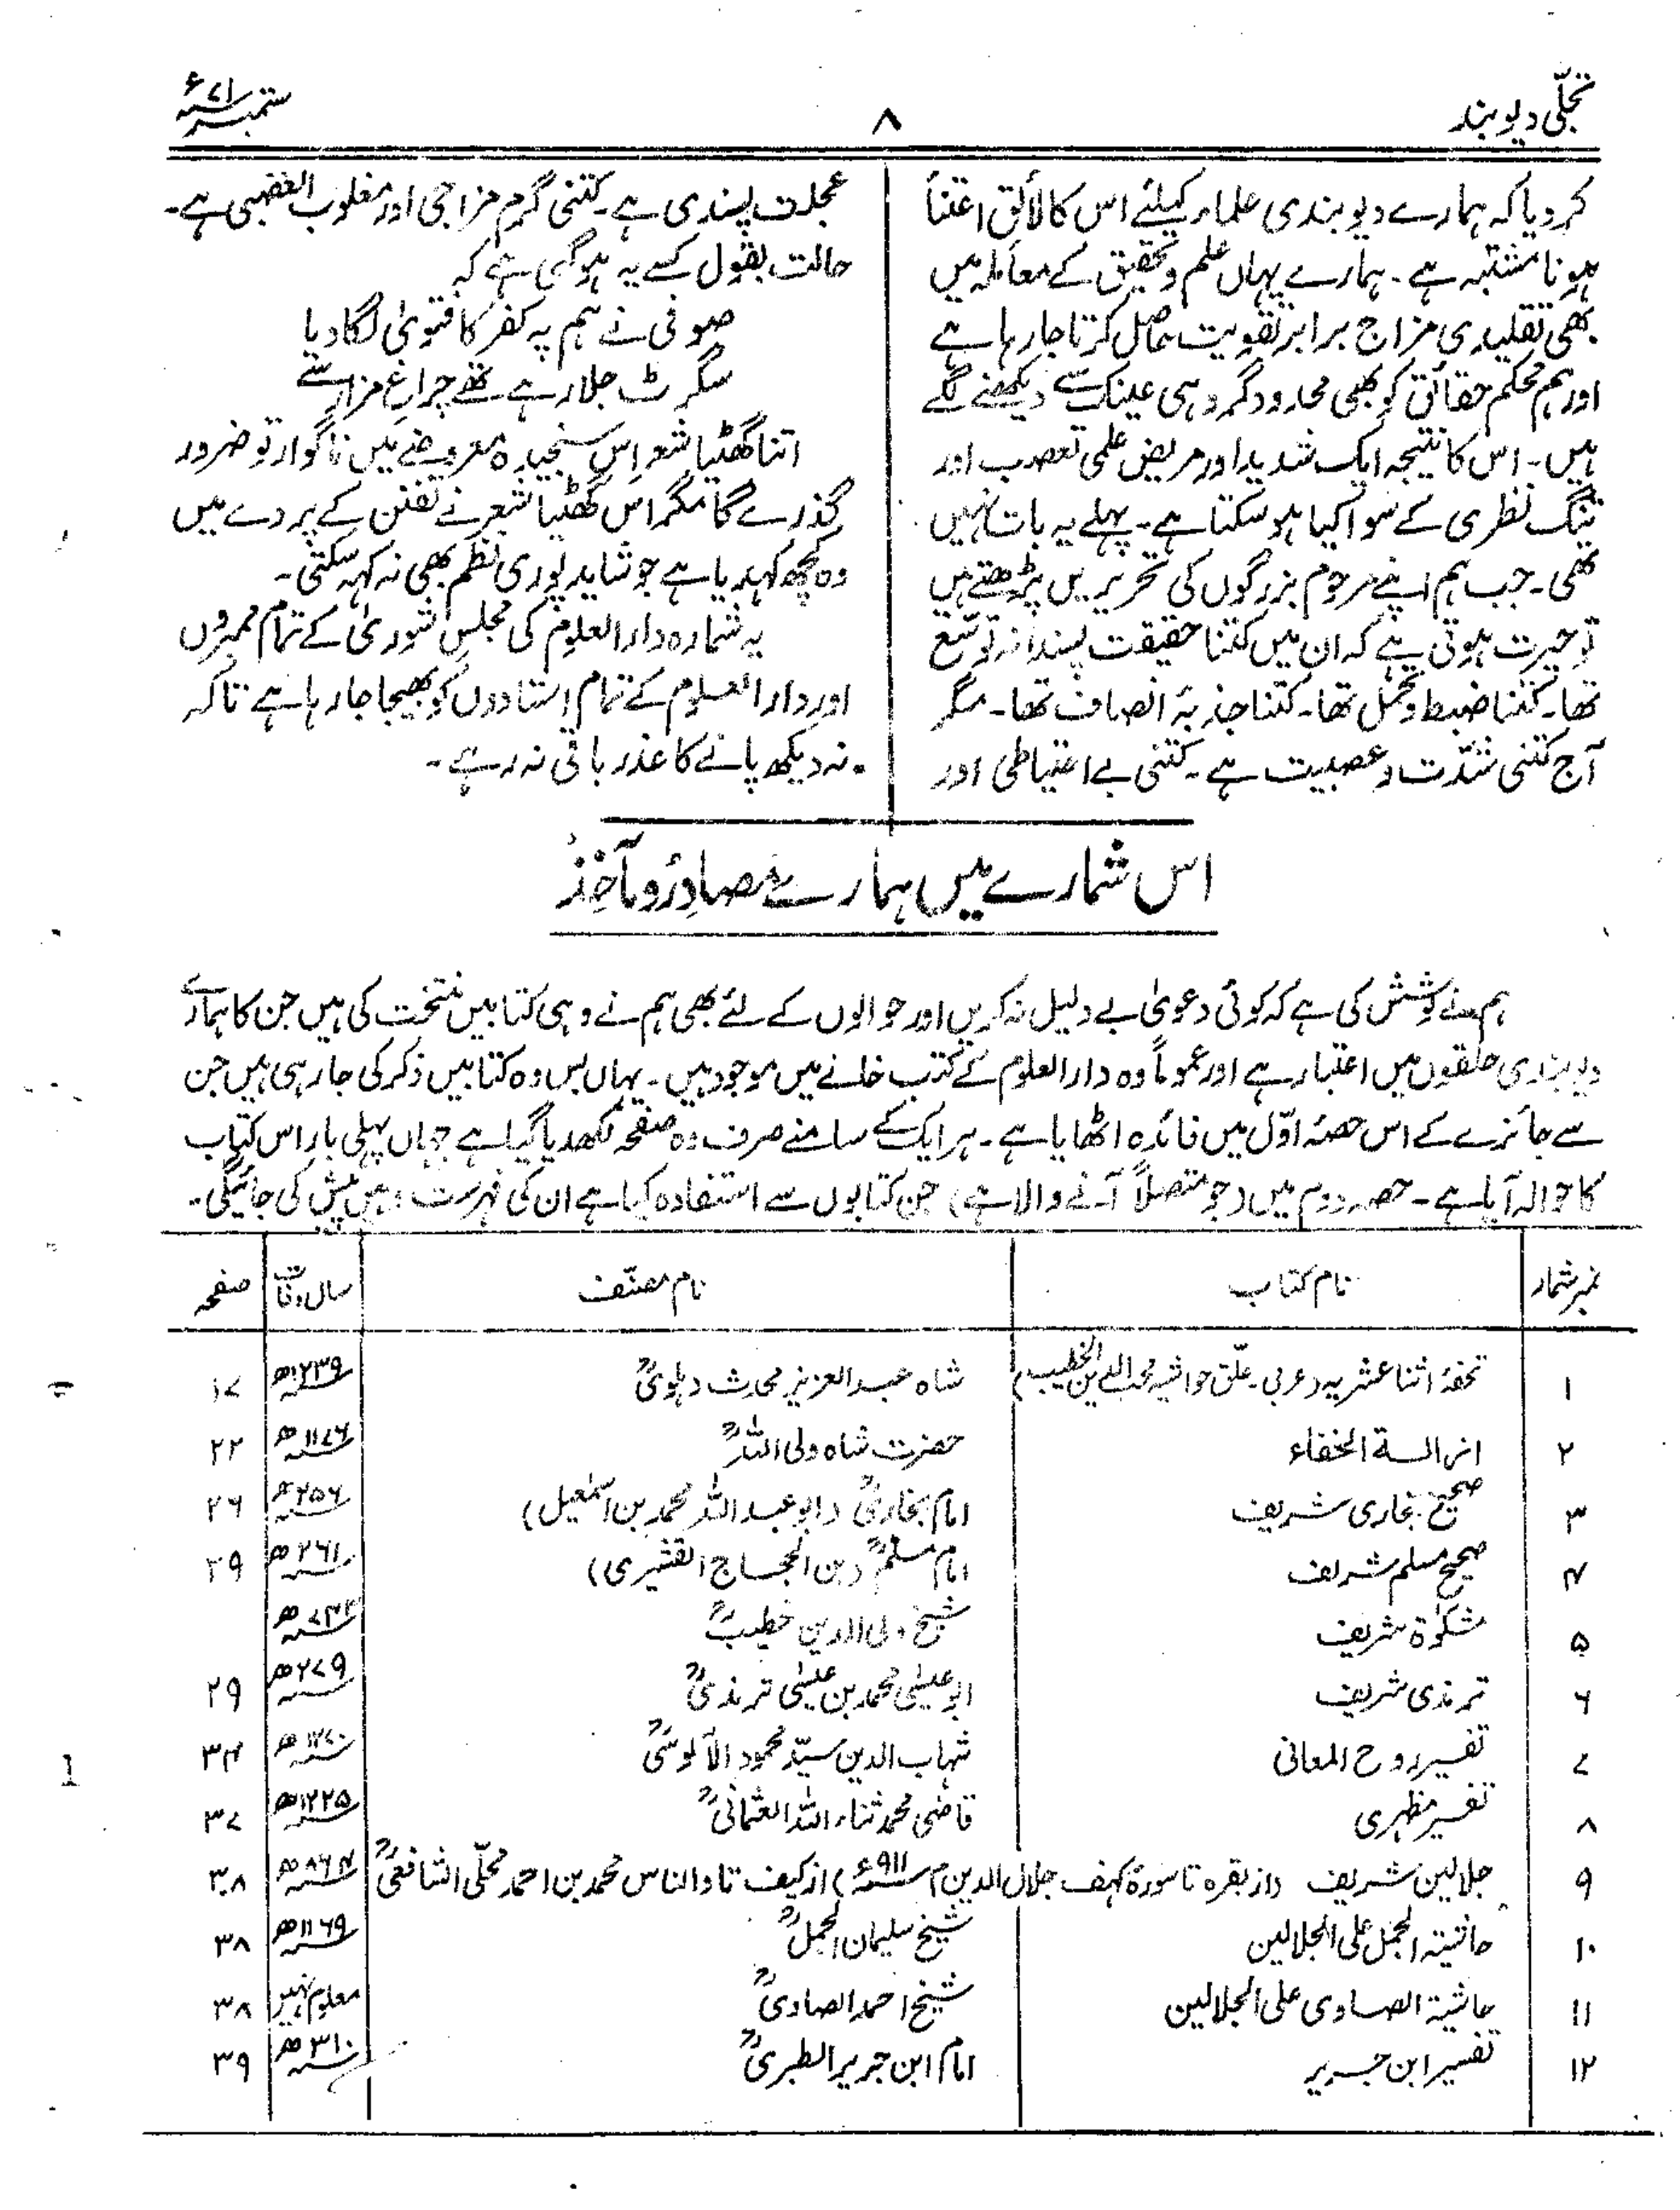 تجلّی دیوبند
۸
ستمبر ۷۱ء
کردیا کہ ہمارے دیوبندی علماء کیلئے اس کا لائق اعتنأ
ہونا مشتبہ ہے۔ ہمارے یہاں علم و تحقیق کے معاملہ میں
بھی تقلیدی مزاج برابر تقویت حاصل کرتا جارہا ہے
اور ہم محکم حقائق کو بھی محدود گروہی عینک سے دیکھنے لگے
ہیں۔ اس کا نتیجہ ایک شدید اور مریض علمی تعصب اور
تنگ نظری کے سوا کیا ہوسکتا ہے۔ پہلے یہ بات نہیں
تھی۔ جب ہم اپنے مرحوم بزرگوں کی تحریریں پڑھتے ہیں
تو حیرت ہوتی ہے کہ ان میں کتنا حقیقت پسندانہ توسّع
تھا۔ کتنا ضبط و تحمل تھا۔ کتنا جذبۂ انصاف تھا۔ مگر
آج کتنی شدّت و عصبیت ہے۔ کتنی بے احتیاطی اور
عجلت پسندی ہے۔ کتنی گرم مزاجی اور مغلوب الغضبی ہے۔
حالت بقول کسے یہ ہوگئی ہے کہ
صوفی نے ہم پہ کفر کا فتویٰ لگا دیا
سگرٹ جلا رہے تھے چراغِ مزار سے
اتنا گھٹیا شعر اِس سنجیدہ معروضے میں ناگوار تو ضرور
گذرے گا مگر اس گھٹیا شعر نے تفنن کے پردے میں
وہ کچھ کہدیا ہے جو شاید پوری نظم بھی نہ کہہ سکتی۔
یہ شمارہ دارالعلوم کی مجلسِ شوریٰ کے تمام ممبروں
اور دارالعلوم کے تمام استادوں کو بھیجا جارہا ہے تاکہ
نہ دیکھ پانے کا عذر باقی نہ رہے۔
اس شمارے میں ہمارے مصادِر و مآخِذ
ہم نے کوشش کی ہے کہ کوئی دعویٰ بے دلیل نہ کریں اور حوالوں کے لئے بھی ہم نے وہی کتابیں منتخت کی ہیں جن کا ہمارے
دیوبندی حلقوں میں اعتبار ہے اور عموماً وہ دارالعلوم کے کتب خانے میں موجود ہیں۔ یہاں بس وہ کتابیں ذکر کی جارہی ہیں جن
سے جائزے کے اس حصۂ اوّل میں فائدہ اٹھایا ہے۔ ہر ایک کے سامنے صرف وہ صفحہ لکھدیا گیا ہے جہاں پہلی بار اس کتاب
کا حوالہ آیا ہے۔ حصہ دوم میں (جو متصلاً آنے والا ہے) جن کتابوں سے استفادہ کیا ہے ان کی فہرست وہیں پیش کی جائیگی۔
نمبر شمار نام کتاب نام مصنّف سال وفات صفحہ
۱ تحفۂ اثنا عشریہ (عربی۔ علّق حواشیہ محب الدین الخطیب) شاہ عبدالعزیز محدث دہلویؒ ۱۲۳۹ھ ۱۷
۲ ازالۃ الخفاء حضرت شاہ ولی اللہؒ ۱۱۷۶ھ ۲۲
۳ صحیح بخاری شریف امام بخاریؒ (ابو عبداللہ محمد بن اسمٰعیل) ۲۵۶ھ ۲۶
۴ صحیح مسلم شریف امام مسلمؒ (بن الحجاج القشیری) ۲۶۱ھ ۲۹
۵ مشکوٰۃ شریف شیخ ولی الدین خطیبؒ
۶ ترمذی شریف ابو عیسٰی محمد بن عیسٰی ترمذیؒ ۲۷۹ھ ۲۹
۷ تفسیر روح المعانی شہاب الدین سیّد محمود الآلوسیؒ ۱۲۷۰ھ ۳۴
۸ تفسیر مظہری قاضی محمد ثناء اللہ العثمانیؒ ۱۲۲۵ھ ۳۷
۹ جلالین شریف (از بقرہ تا سورۂ کہف جلال الدین م ۹۱۱ء) از کہف تا والناس محمد بن احمد محلّی الشافعیؒ ۸۶۴ھ ۳۸
۱۰ حاشیۃ الجمل علی الجلالین شیخ سلیمان الجملؒ ۱۱۶۹ھ ۳۸
۱۱ حاشیۃ الصاوی علی الجلالین شیخ احمد الصاویؒ معلوم نہیں ۳۸
۱۲ تفسیر ابن جریر امام ابن جریر الطبریؒ ۳۱۰ھ ۳۹